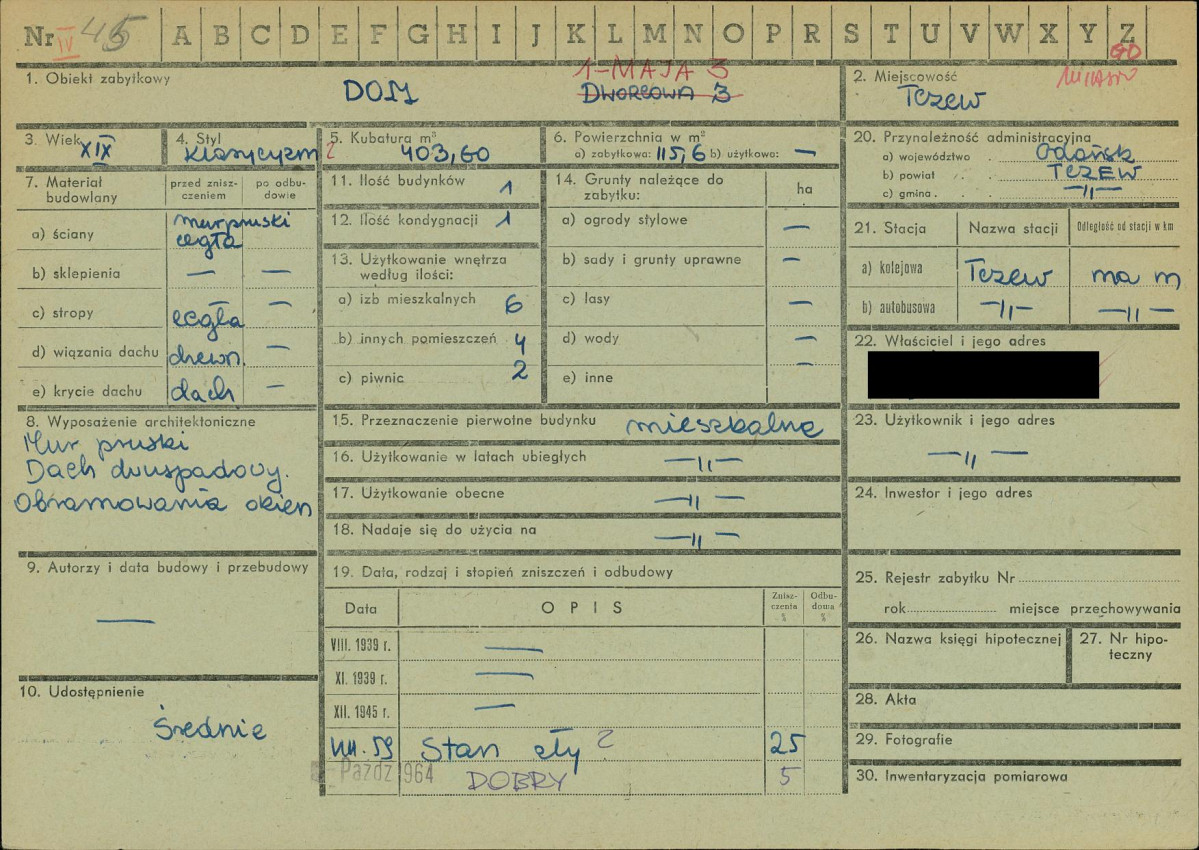 Nr IV 45 A B C D E F G H I J K L M N O P R S T U V W X Y Z
GD
1. Obiekt zabytkowy
DOM
1-MAJA 3
DWORCOWA 3
2. Miejscowość
Tczew
MIASTO
3. Wiek
XIX
4. Styl
Klasycyzm
5. Kubatura m³
403,60
6. Powierzchnia w m²
a) zabytkowa: 115,6 b) użytkowa: —
7. Materiał budowlany
przed zniszczeniem
po odbudowie
a) ściany
mur pruski
cegła
b) sklepienia — —
c) stropy cegła —
d) wiązania dachu drewn. —
e) krycie dachu dach —
8. Wyposażenie architektoniczne
Mur pruski
Dach dwuspadowy.
Obramowania okien
9. Autorzy i data budowy i przebudowy
—
10. Udostępnienie
Średnie
11. Ilość budynków 1
12. Ilość kondygnacji 1
13. Użytkowanie wnętrza
według ilości:
a) izb mieszkalnych 6
b) innych pomieszczeń 4
c) piwnic 2
14. Grunty należące do
zabytku:
ha
a) ogrody stylowe —
b) sady i grunty uprawne —
c) lasy —
d) wody —
e) inne —
15. Przeznaczenie pierwotne budynku mieszkalne
16. Użytkowanie w latach ubiegłych —„—
17. Użytkowanie obecne —„—
18. Nadaje się do użycia na —„—
19. Data, rodzaj i stopień zniszczeń i odbudowy
Data
OPIS
Zniszczenia %
Odbudowa %
VIII. 1939 r. —
XI. 1939 r. —
XII. 1945 r. —
VIII. 59 Stan zły 25
Paźdz 1964 DOBRY 5
20. Przynależność administracyjna
a) województwo Gdańsk
b) powiat TCZEW
c) gmina —„—
21. Stacja
Nazwa stacji
Odległość od stacji w km
a) kolejowa Tczew na m
b) autobusowa —„— —„—
22. Właściciel i jego adres
23. Użytkownik i jego adres
—„—
24. Inwestor i jego adres
25. Rejestr zabytku Nr
rok miejsce przechowywania
26. Nazwa księgi hipotecznej
27. Nr hipo-
teczny
28. Akta
29. Fotografie
30. Inwentaryzacja pomiarowa